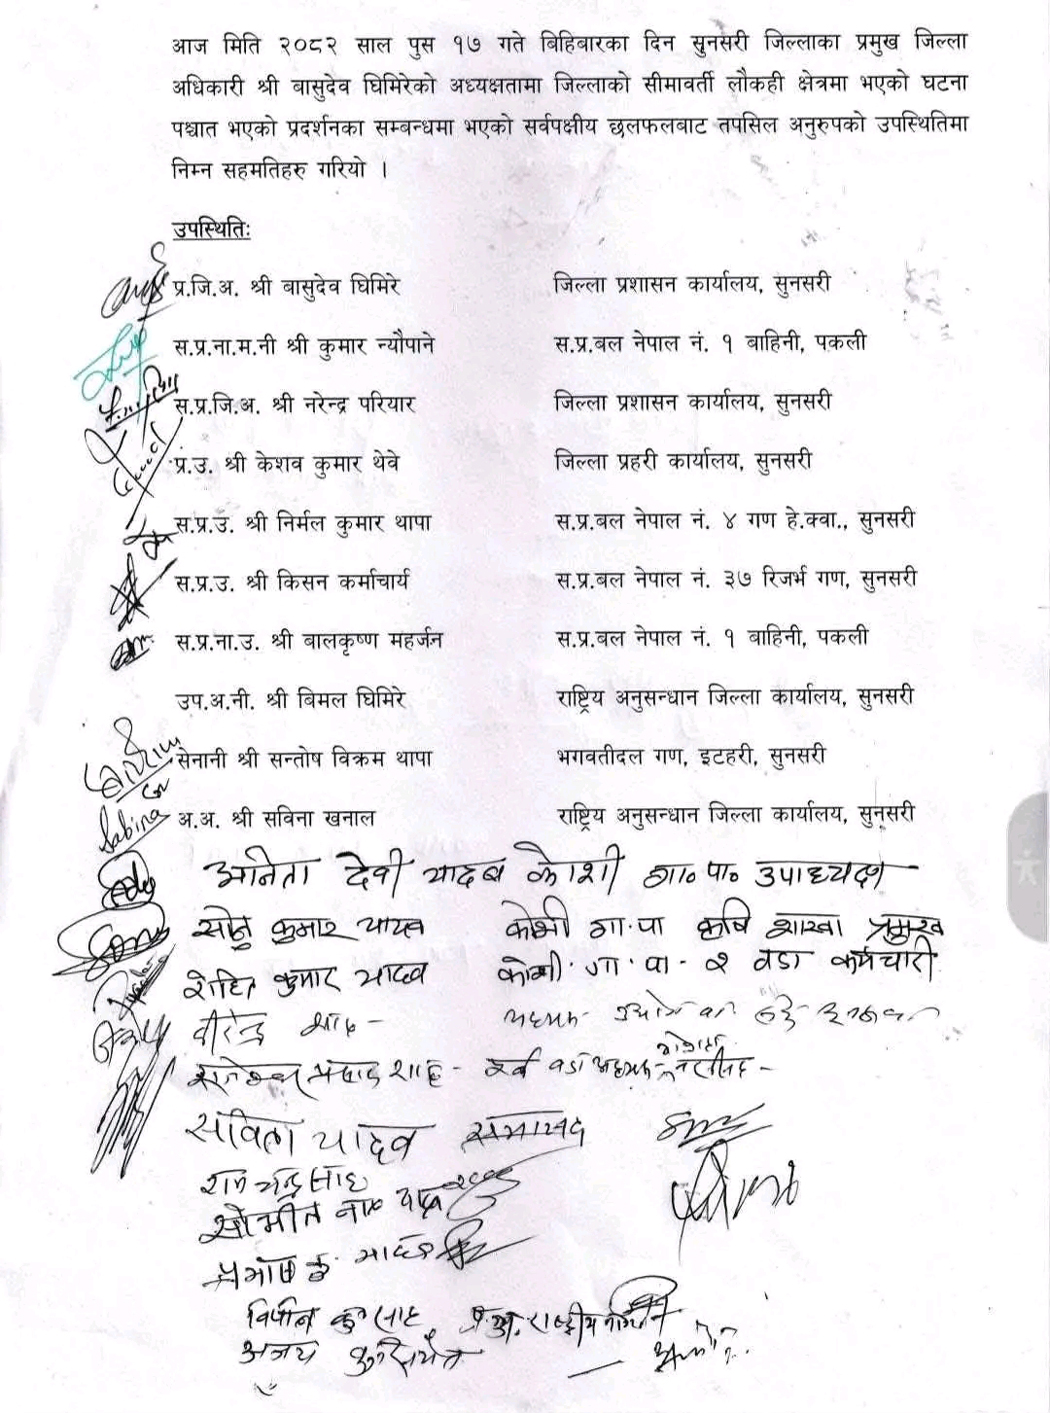 आज मिति २०८२ साल पुस १७ गते बिहिबारका दिन सुनसरी जिल्लाका प्रमुख जिल्ला
अधिकारी श्री बासुदेव घिमिरेको अध्यक्षतामा जिल्लाको सीमावर्ती लौकही क्षेत्रमा भएको घटना
पश्चात भएको प्रदर्शनका सम्बन्धमा भएको सर्वपक्षीय छलफलबाट तपसिल अनुरुपको उपस्थितिमा
निम्न सहमतिहरु गरियो ।
उपस्थितिः
प्र.जि.अ. श्री बासुदेव घिमिरे जिल्ला प्रशासन कार्यालय, सुनसरी
स.प्र.ना.म.नी श्री कुमार न्यौपाने स.प्र.बल नेपाल नं. १ बाहिनी, पकली
स.प्र.जि.अ. श्री नरेन्द्र परियार जिल्ला प्रशासन कार्यालय, सुनसरी
प्र.उ. श्री केशव कुमार थेवे जिल्ला प्रहरी कार्यालय, सुनसरी
स.प्र.उ. श्री निर्मल कुमार थापा स.प्र.बल नेपाल नं. ४ गण हे.क्वा., सुनसरी
स.प्र.उ. श्री किसन कर्माचार्य स.प्र.बल नेपाल नं. ३७ रिजर्भ गण, सुनसरी
स.प्र.ना.उ. श्री बालकृष्ण महर्जन स.प्र.बल नेपाल नं. १ बाहिनी, पकली
उप.अ.नी. श्री बिमल घिमिरे राष्ट्रिय अनुसन्धान जिल्ला कार्यालय, सुनसरी
सेनानी श्री सन्तोष विक्रम थापा भगवतीदल गण, इटहरी, सुनसरी
Sabina अ.अ. श्री सविना खनाल राष्ट्रिय अनुसन्धान जिल्ला कार्यालय, सुनसरी
अनिता देवी यादव कोशी गा॰ पा॰ उपाध्यक्ष
सोनु कुमार यादव कोशी गा.पा कृषि शाखा प्रमुख
कुमार यादव कोशी.गा.पा - २ वडा कर्मचारी
वीरेन्द्र साह -
प्रसाद शाह - वडा अध्यक्ष
सविता यादव सभासद
साह
यादव
विपीन कु साह
अजय